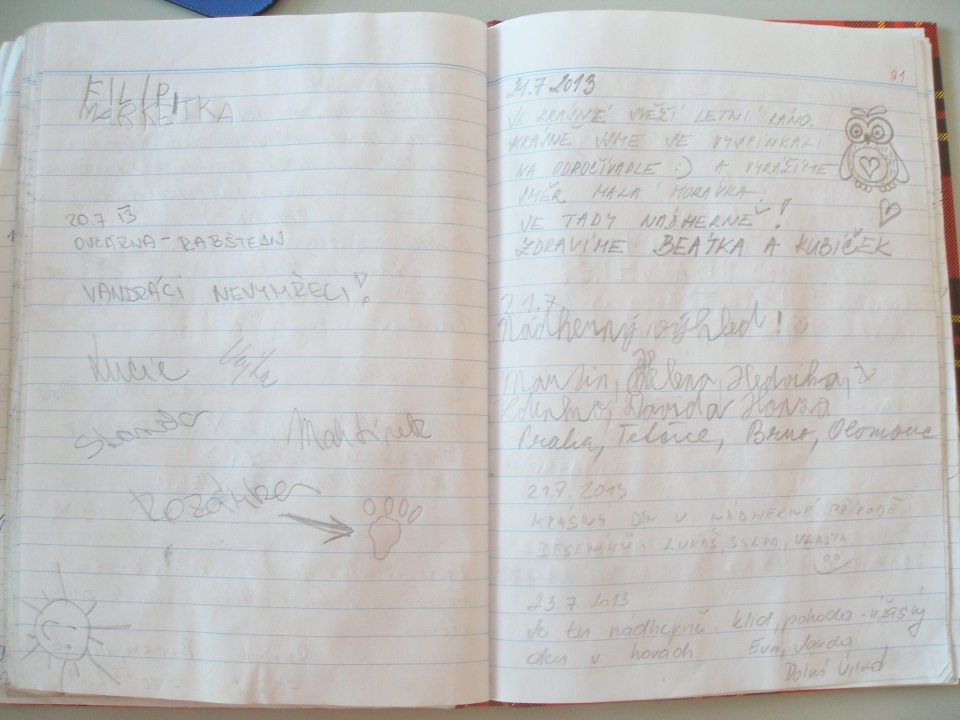 FILIP,
MARKÉTKA
20.7. 13
OVČÁRNA - RABŠTEJN
VANDRÁCI NEVYMŘELI!
Lucie
Standa
Martinek
Rozárka
81
21.7 2013
JE KRÁSNÉ SVĚŽÍ LETNÍ RÁNO.
KRÁSNE JSME SE VYSPINKALI
NA ODPOČÍVADLE :) A VYRÁŽÍME
SMĚR MALÁ MORÁVKA.
JE TADY NÁDHERNĚ!
ZDRAVÍME BEÁTKA A KUBÍČEK
21.7.
Nádherný výhled!
Martin, Helena, Hedvika,
Zdenka, Davida Honza
Praha, Brno, Olomouc
21.7. 2013
KRÁSNÝ DEN V NÁDHERNÉ PŘÍRODĚ
JESENÍKŮ - LUKÁŠ, VLASTA
23 7. 2013
Je tu nádherně. klid, pohoda - úžasný
den v horách Eva, Jarda
Dolní